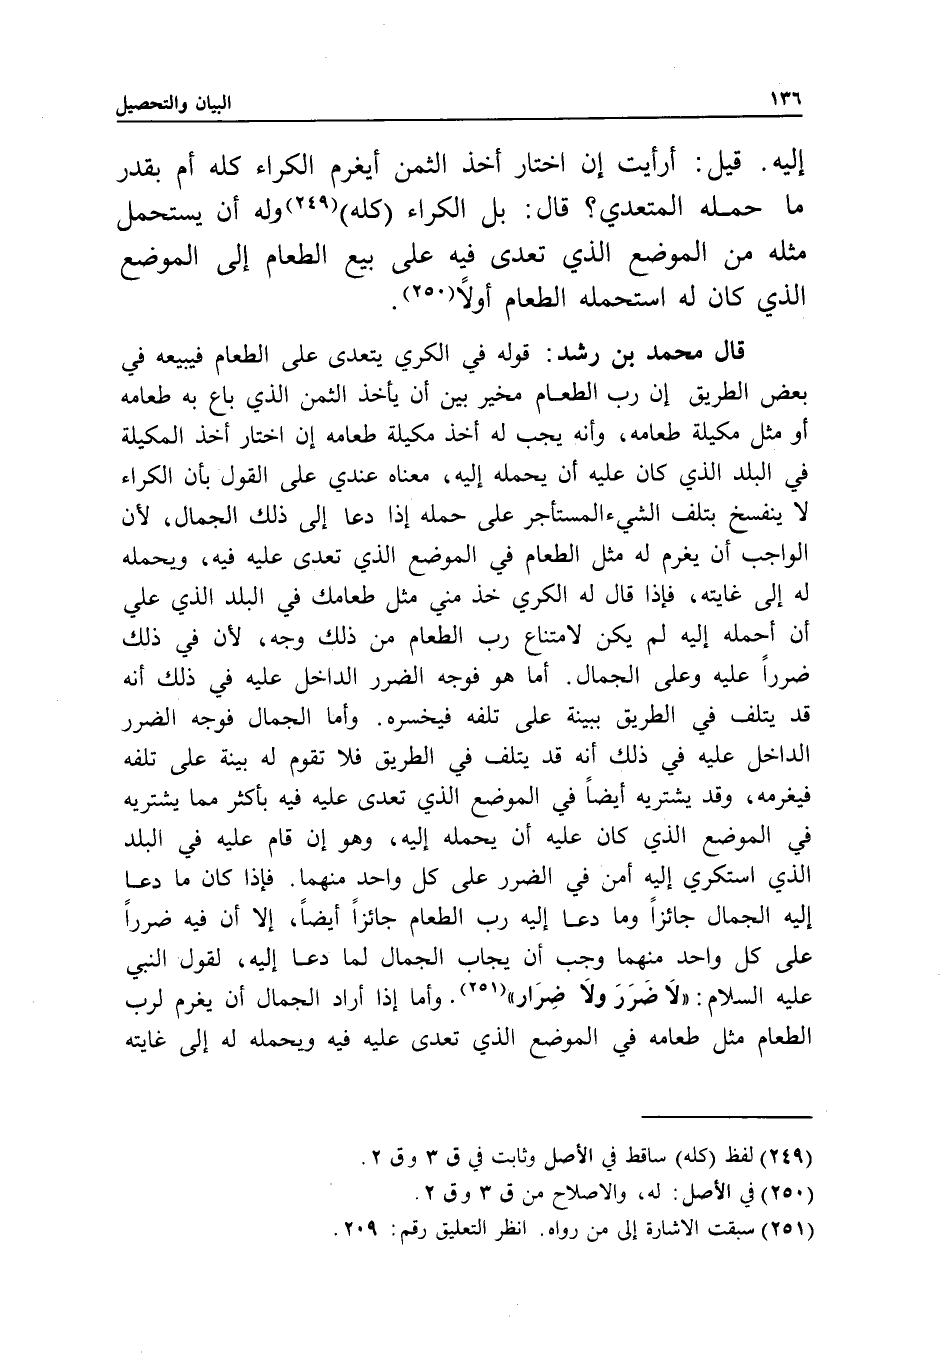 ١٣٦ البيان والتحصيل
إليه. قيل: أرأيت إن اختار أخذ الثمن أيغرم الكراء كله أم بقدر
ما حمله المتعدي؟ قال: بل الكراء (كله)(٢٤٩) وله أن يستحمل
مثله من الموضع الذي تعدى فيه على بيع الطعام إلى الموضع
الذي كان له استحمله الطعام أولاً(٢٥٠).
قال محمد بن رشد: قوله في الكري يتعدى على الطعام فيبيعه في
بعض الطريق إن رب الطعام مخير بين أن يأخذ الثمن الذي باع به طعامه
أو مثل مكيلة طعامه، وأنه يجب له أخذ مكيلة طعامه إن اختار أخذ المكيلة
في البلد الذي كان عليه أن يحمله إليه، معناه عندي على القول بأن الكراء
لا ينفسخ بتلف الشيء المستأجر على حمله إذا دعا إلى ذلك الجمال، لأن
الواجب أن يغرم له مثل الطعام في الموضع الذي تعدى عليه فيه، ويحمله
له إلى غايته، فإذا قال له الكري خذ مني مثل طعامك في البلد الذي علي
أن أحمله إليه لم يكن لامتناع رب الطعام من ذلك وجه، لأن في ذلك
ضرراً عليه وعلى الجمال. أما هو فوجه الضرر الداخل عليه في ذلك أنه
قد يتلف في الطريق ببينة على تلفه فيخسره. وأما الجمال فوجه الضرر
الداخل عليه في ذلك أنه قد يتلف في الطريق فلا تقوم له بينة على تلفه
فيغرمه، وقد يشتريه أيضاً في الموضع الذي تعدى عليه فيه بأكثر مما يشتريه
في الموضع الذي كان عليه أن يحمله إليه، وهو إن قام عليه في البلد
الذي استكري إليه أمن في الضرر على كل واحد منهما. فإذا كان ما دعا
إليه الجمال جائزاً وما دعا إليه رب الطعام جائزاً أيضاً، إلا أن فيه ضرراً
على كل واحد منهما وجب أن يجاب الجمال لما دعا إليه، لقول النبي
عليه السلام: «لاَ ضَرَرَ ولاَ ضِرَار»(٢٥١). وأما إذا أراد الجمال أن يغرم لرب
الطعام مثل طعامه في الموضع الذي تعدى عليه فيه ويحمله له إلى غايته
(٢٤٩) لفظ (كله) ساقط في الأصل وثابت في ق ٣ وق ٢.
(٢٥٠) في الأصل: له، والاصلاح من ق ٣ وق ٢.
(٢٥١) سبقت الاشارة إلى من رواه. انظر التعليق رقم: ٢٠٩.